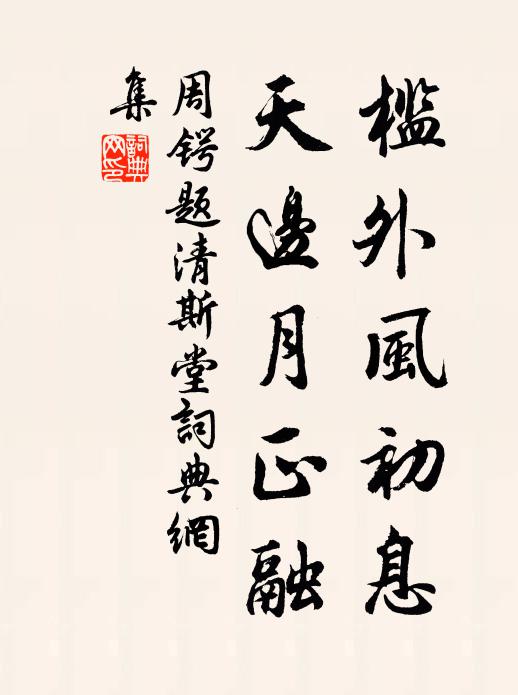 檻外風初息
天邊月正融
周锷題清斯堂詞典網
集
詞典
网印